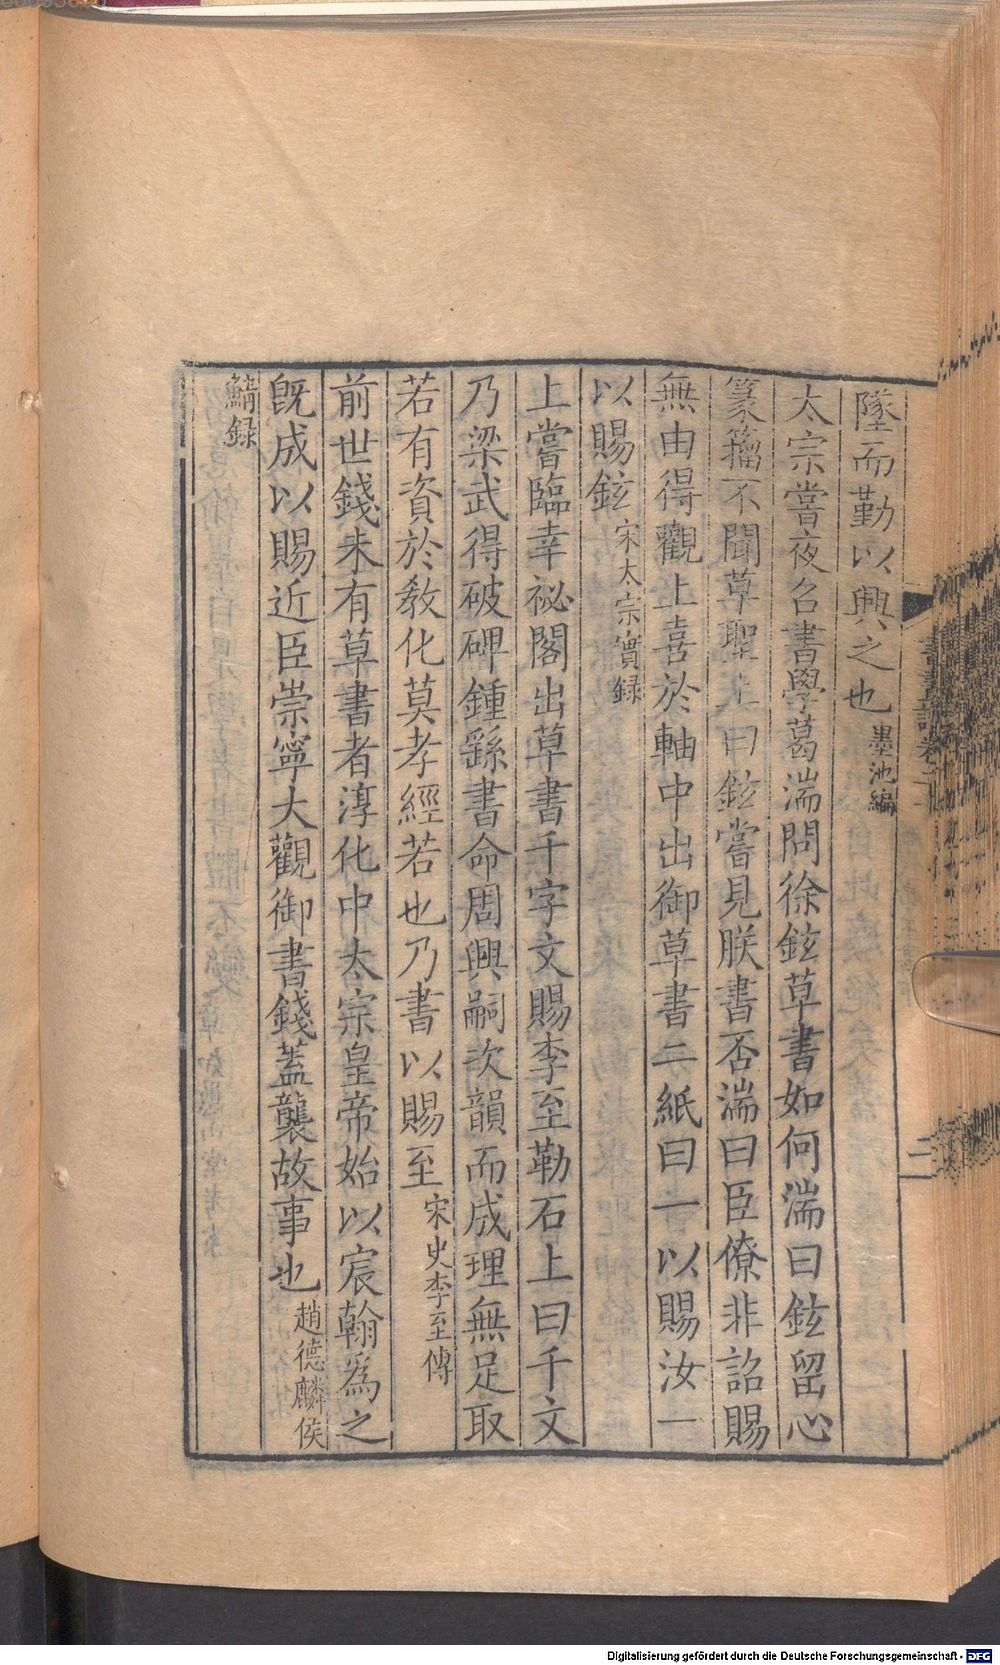 墜而勤以興之也墨池編
太宗嘗夜召書學葛湍問徐鉉草書如何湍曰鉉留心
篆籀不聞草聖上曰鉉嘗見朕書否湍曰臣僚非詔賜
無由得觀上喜於軸中出御草書二紙曰一以賜汝一
以賜鉉宋太宗實録
上嘗臨幸祕閣出草書千字文賜李至勒石上曰千文
乃梁武得破碑鍾繇書命周興嗣次韻而成理無足取
若有資於敎化莫孝經若也乃書以賜至宋史李至傳
前世錢未有草書者淳化中太宗皇帝始以宸翰爲之
旣成以賜近臣崇寧大觀御書錢蓋襲故事也趙德麟侯
鯖録
二
Digitalisierung gefördert durch die Deutsche Forschungsgemeinschaft - DFG